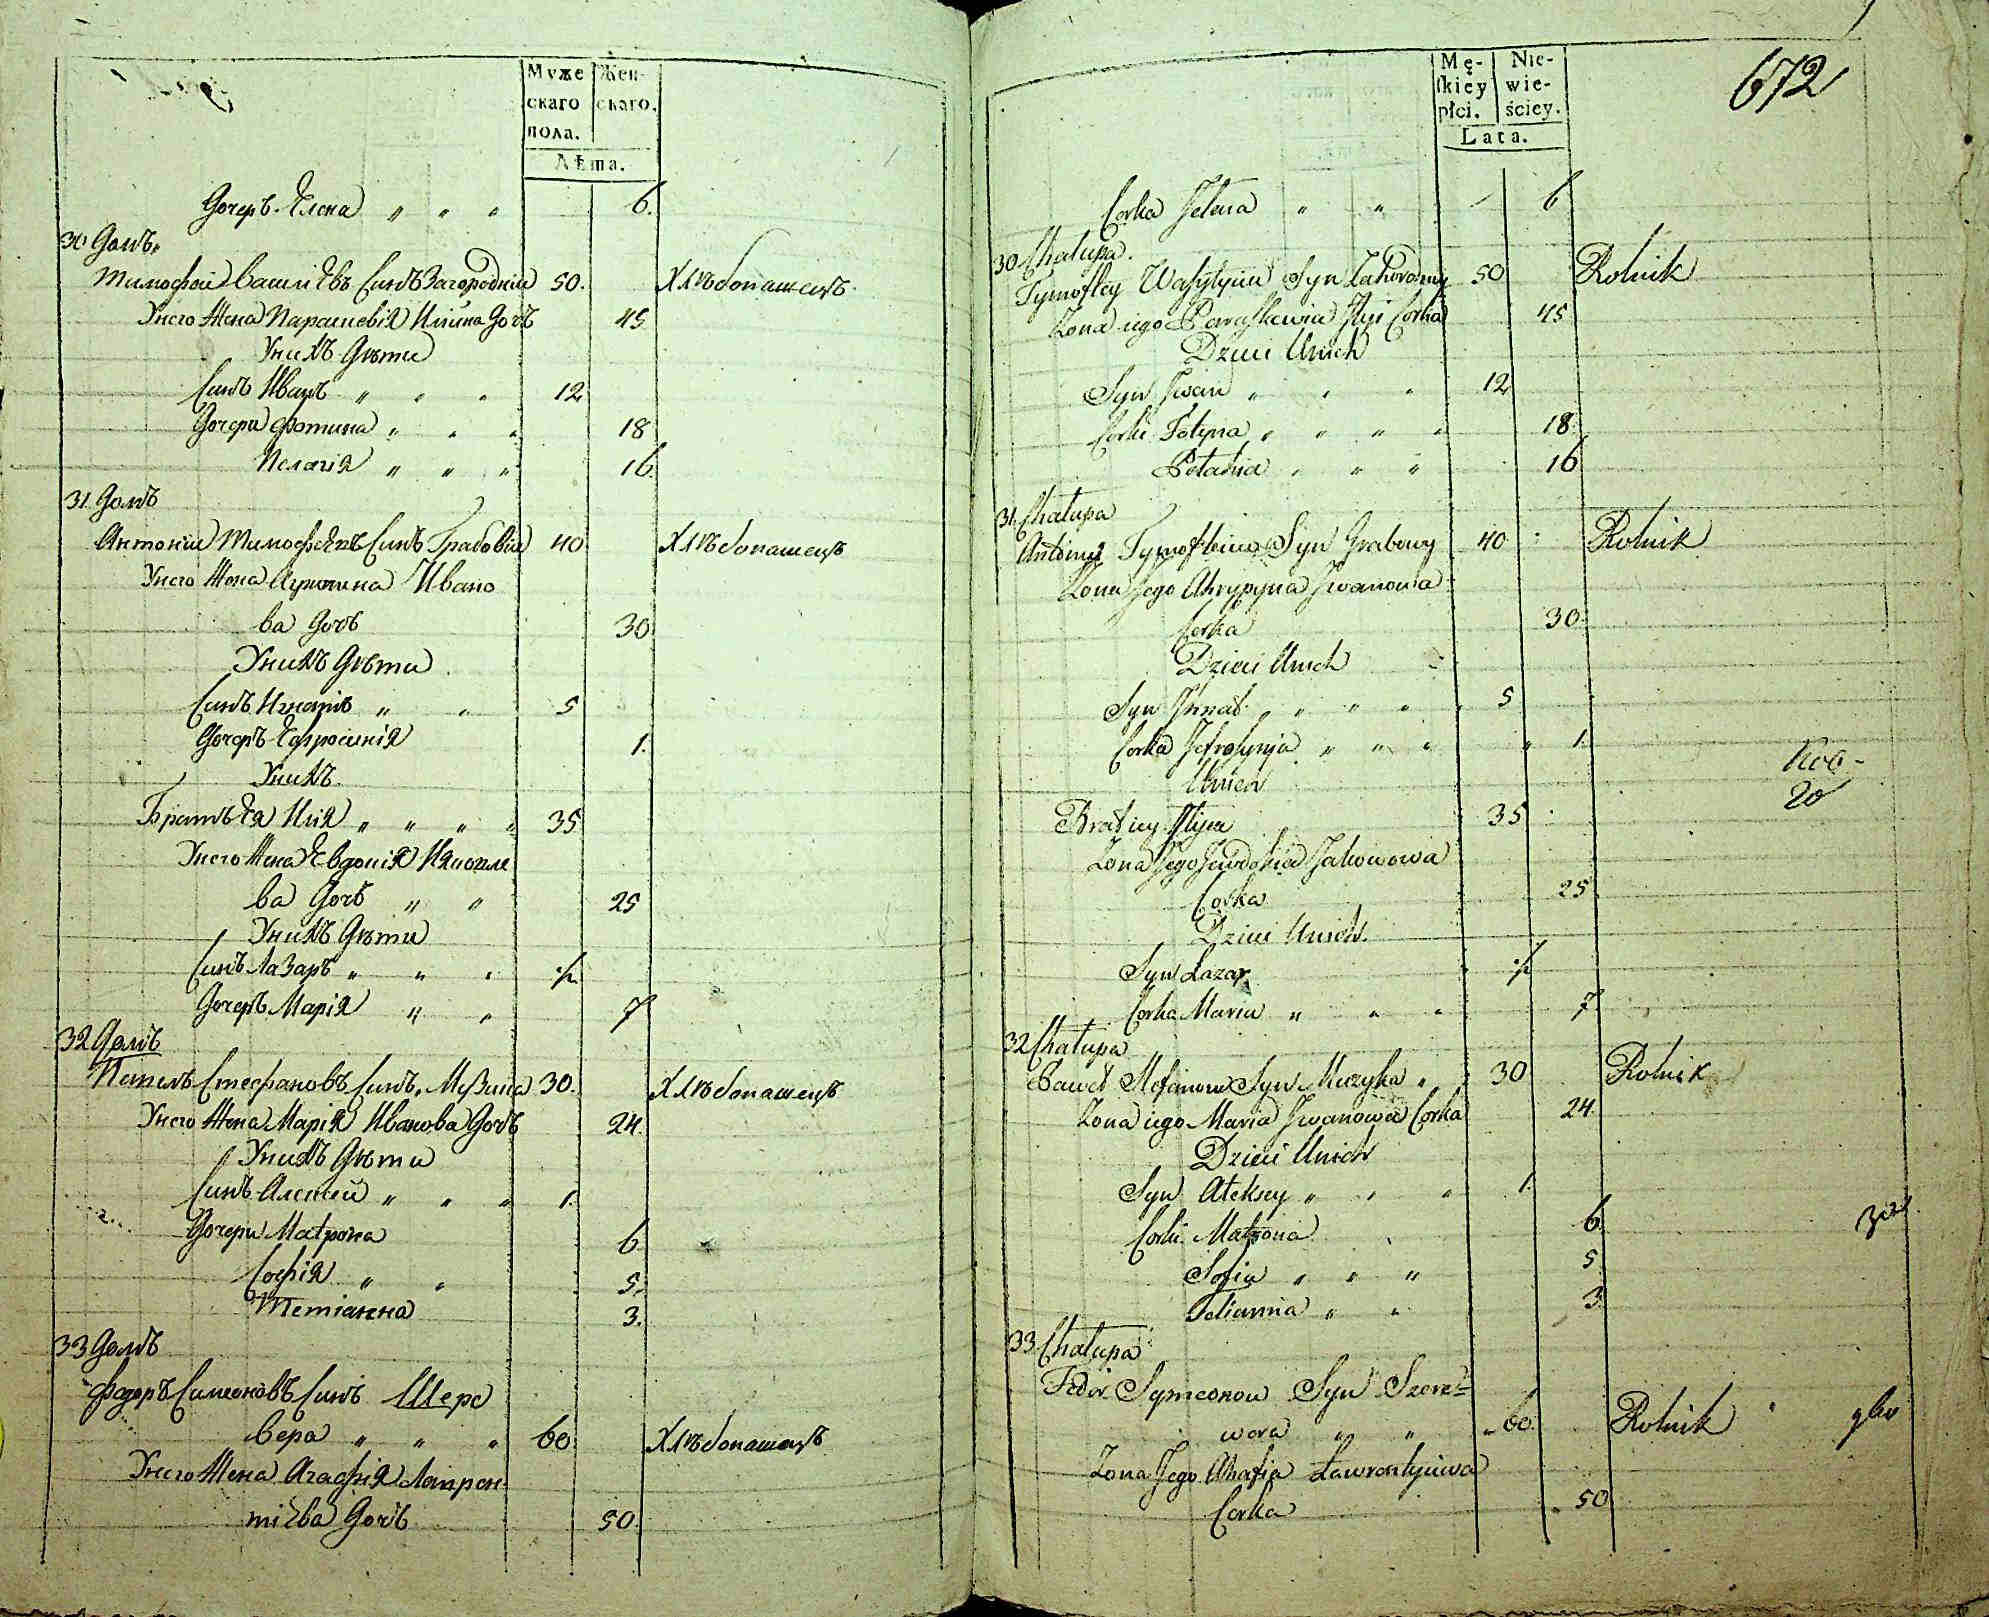 Муже
скаго
пола.
Жен-
скаго.
Лѣта.
Дочерь Елена „ „ „ 6.
30 Домъ.
Тимофей Василіевъ Синъ Загородній 50. Хлѣбопашецъ
У него Жена Параскевія Иліина Дочь 45.
У нихъ Дѣти
Синъ Иванъ „ „ „ 12
Дочери Фотина „ „ „ 18
Пелагія „ „ „ 16.
31 Домъ
Антоній Тимофѣевъ Синъ Грабовій 40 Хлѣбопашецъ
У него Жена Агрипина Ивано
ва Дочь 30.
У нихъ Дѣти
Синъ Игнатій „ „ 5
Дочерь Ефросинія 1.
У нихъ
Братъ Ея Илія „ „ „ „ 35
У него Жена Евдокія Иаковле
ва Дочь „ „ 25
У нихъ Дѣти
Синъ Лазарь „ „ „
Дочерь Марія „ „ 7
32 Домъ
Павелъ Стефановъ Синъ Музика 30. Хлѣбопашецъ
У него Жена Марія Иванова Дочь 24.
У нихъ Дѣти
Синъ Алексей „ „ „ 1.
Дочери Матрона 6
Софія „ „ 5.
Тетіанна 3.
33 Домъ
Федоръ Симеоновъ Синъ Шере
вера „ „ „ 60 Хлѣбопашецъ
У него Жена Агафія Лаврен
тіева Дочь 50
672
Mę-
skiey
płci.
Nie-
wie-
ściey.
Lata.
Corka Jelena „ „ 6
30 Chałupa.
Tymofiey Wasylyiw Syn Zahorodny 50 Rolnik
Zona iego Paraskewia Ilyi Corka 45
Dzieci Unich
Syn Jwan „ „ „ 12
Corki Fotyna „ „ „ „ 18.
Pełahia „ „ „ 16
31 Chałupa
Antoni Tymofieiow Syn Grabowy 40 Rolnik
Zona Jego Ahrypyna Jwanowa
Corka 30.
Dzieci Unich
Syn Ihnat „ „ „ „ 5
Corka Jefrosynja „ „ „ „ 1.
Unich
Brat iey Ilija 35
Zona Jego Jewdokia Jakowowa
Corka 25
Dzieci Unich.
Syn Łazar
Corka Maria „ „ „ 7
32 Chałupa
Paweł Stefanow Syn Muzyka „ 30 Rolnik
Zona iego Maria Jwanowa Corka 24.
Dzieci Unich
Syn Ałeksey „ „ „ 1.
Corki Matrona 6.
Sofia „ „ „ 5
Tetianna „ „ 3.
33 Chałupa
Fedor Symeonow Syn Szere-
wera „ „ „ 60. Rolnik
Zona Jego Ahafia Ławrentyiwa
Corka 50